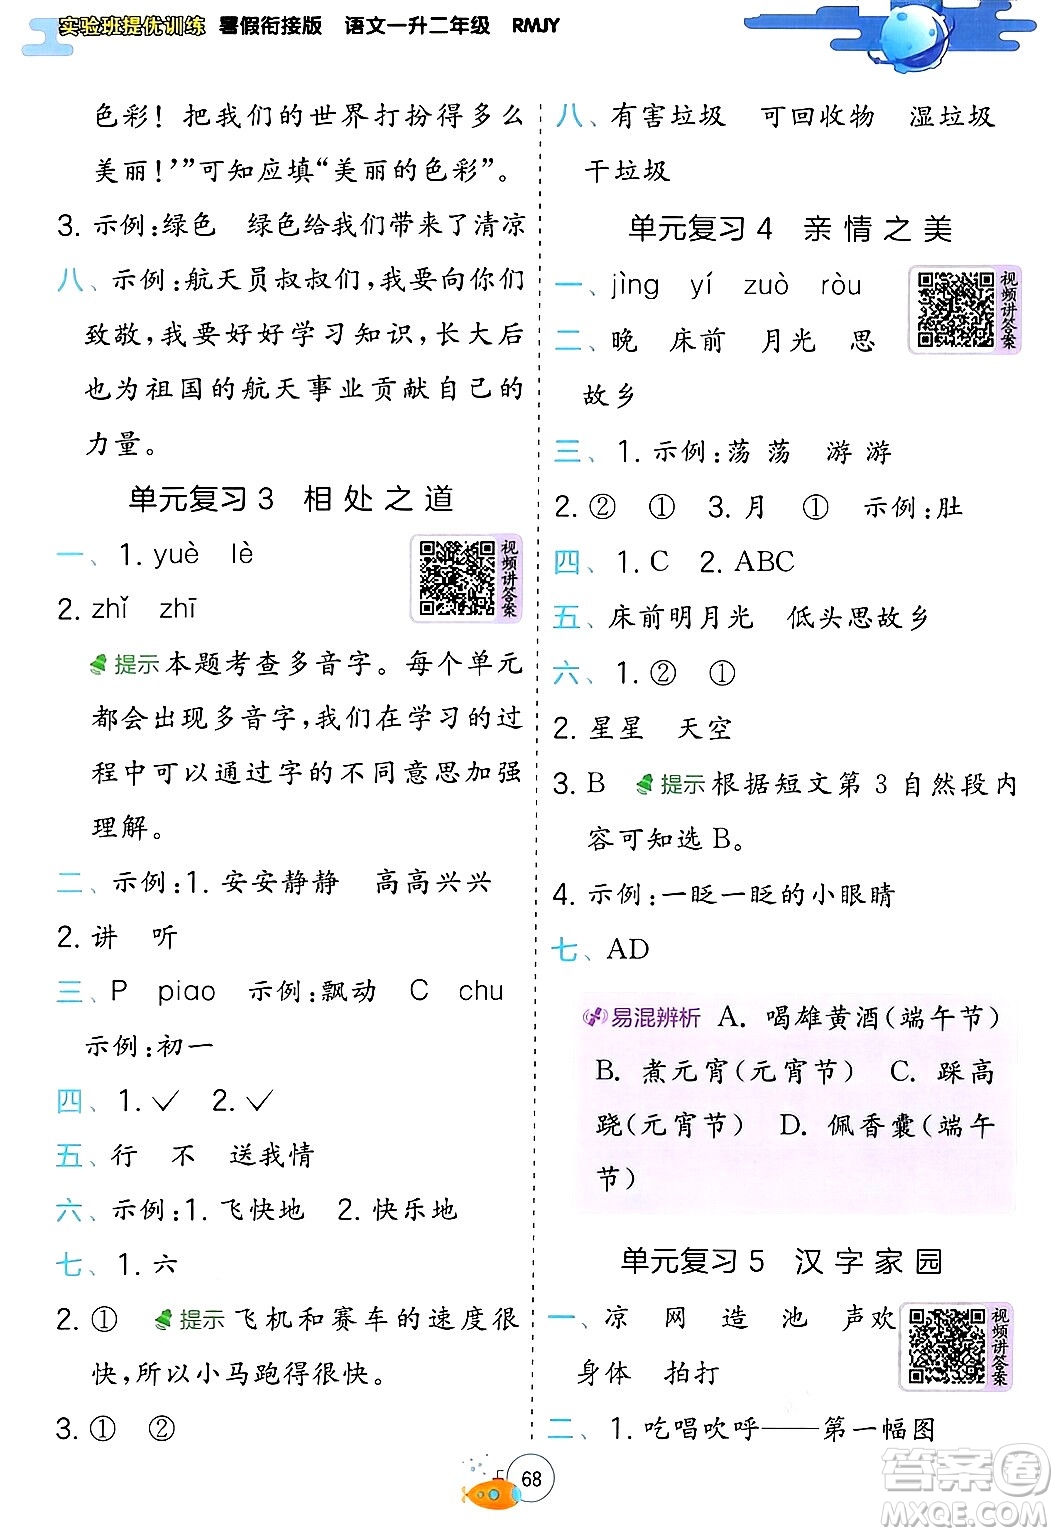 实验班提优训练 暑假衔接版 语文一升二年级 RMJY
色彩！把我们的世界打扮得多么
美丽！’”可知应填“美丽的色彩”。
3. 示例：绿色 绿色给我们带来了清凉
八、示例：航天员叔叔们，我要向你们
致敬，我要好好学习知识，长大后
也为祖国的航天事业贡献自己的
力量。
单元复习 3 相处之道
一、1. yuè lè
2. zhǐ zhī
视频讲答案
提示 本题考查多音字。每个单元
都会出现多音字，我们在学习的过
程中可以通过字的不同意思加强
理解。
二、示例：1. 安安静静 高高兴兴
2. 讲 听
三、P piao 示例：飘动 C chu
示例：初一
四、1. ✓ 2. ✓
五、行 不 送我情
六、示例：1. 飞快地 2. 快乐地
七、1. 六
2. ① 提示 飞机和赛车的速度很
快，所以小马跑得很快。
3. ① ②
八、有害垃圾 可回收物 湿垃圾
干垃圾
单元复习 4 亲情之美
一、jìng yí zuò ròu
二、晚 床前 月光 思
故乡
视频讲答案
三、1. 示例：荡荡 游游
2. ② ① 3. 月 ① 示例：肚
四、1. C 2. ABC
五、床前明月光 低头思故乡
六、1. ② ①
2. 星星 天空
3. B 提示 根据短文第 3 自然段内
容可知选 B。
4. 示例：一眨一眨的小眼睛
七、AD
易混辨析 A. 喝雄黄酒（端午节）
B. 煮元宵（元宵节） C. 踩高
跷（元宵节） D. 佩香囊（端午
节）
单元复习 5 汉字家园
一、凉 网 造 池 声欢
身体 拍打
视频讲答案
二、1. 吃唱吹呼——第一幅图
68
答案圈
MXQE.COM